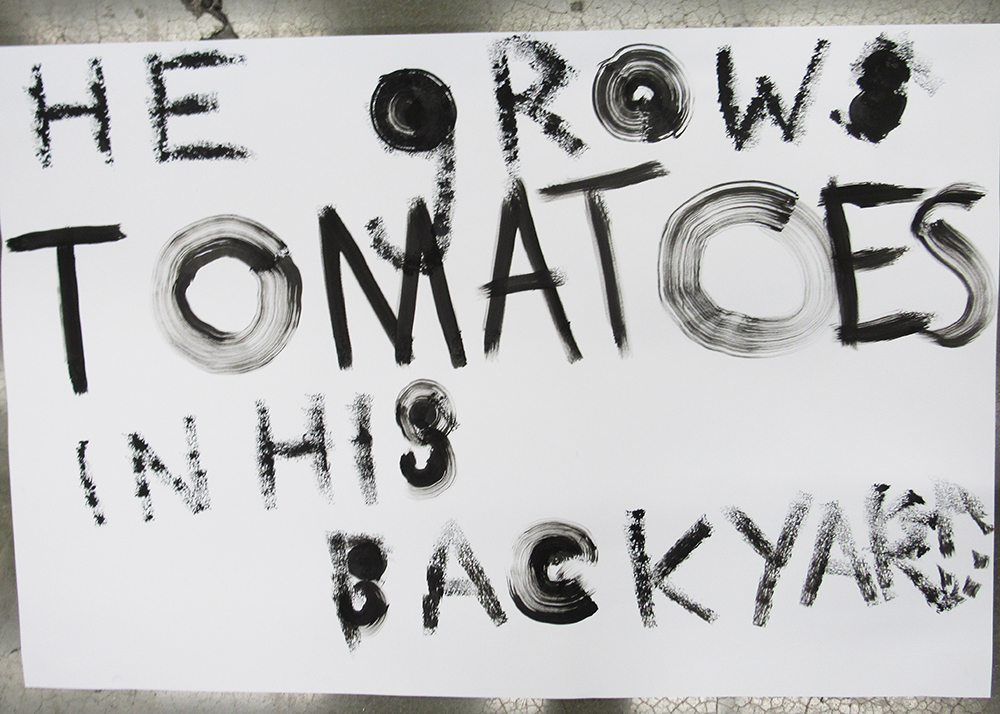 HE gROWS
TOMATOES
IN HIS
BACKYARD